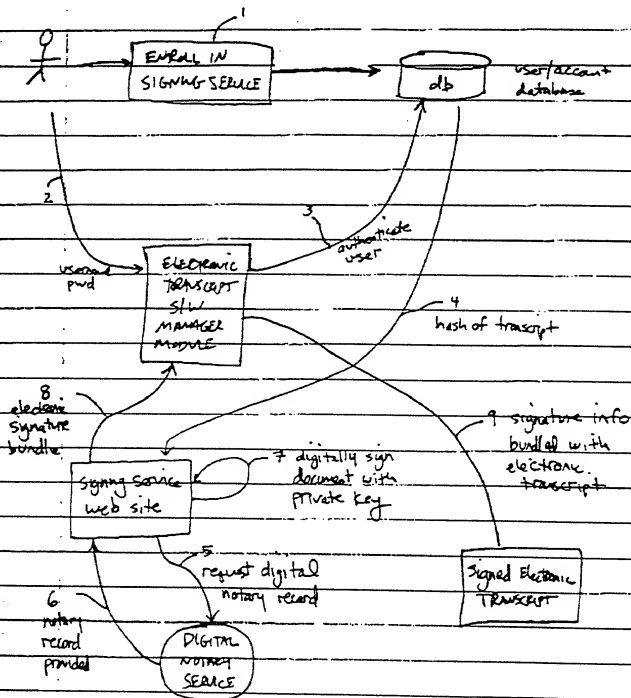 1
ENROLL IN
SIGNING SERVICE
db
user/account
database
2
3
authenticate
user
pwd
ELECTRONIC
TRANSCRIPT
S/W
MANAGER
MODULE
4
hash of transcript
8
electronic
signature
bundle
9 signature info
bundled with
electronic
transcript
7 digitally sign
document with
private key
Signing Service
web site
5
request digital
notary record
Signed Electronic
TRANSCRIPT
6
notary
record
provided
DIGITAL
NOTARY
SERVICE